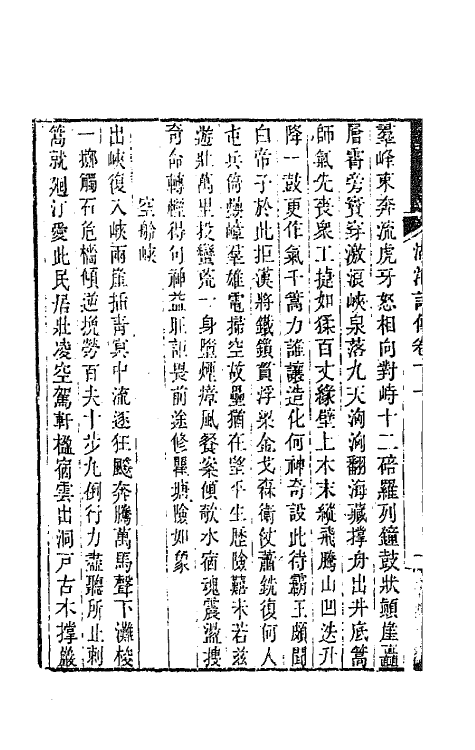 羣峰東奔流虎牙怒相向對峙十二碚羅列鐘鼓狀顛崖矗
層霄旁竇穿激浪峽泉落九天洶洶翻海藏撐舟出井底篙
師氣先喪衆工捷如猱百丈緣壁上木末縱飛騰山凹迭升
降一鼓更作氣千篙力誰讓造化何神奇設此待霸王頗聞
白帝子於此拒漢將鐵鎖貫浮梁金戈森衛仗蕭銑復何人
屯兵倚疊嶂羣雄電掃空故壘猶在望平生歷險囏未若茲
遊壯萬里投蠻荒一身墮煙瘴風餐案傾欹水宿魂震盪搜
奇命轉輕得句神益旺詎畏前途修瞿塘險如象
空舲峽
出峽復入峽兩崖插青冥中流逐狂飈奔騰萬馬聲下灘梭
一擲觸石危檣傾逆挽勞百夫十步九倒行力盡聽所止刺
篙就廻汀愛此民居壯凌空駕軒楹宿雲出洞戸古木撐巖
湖海詩傳卷